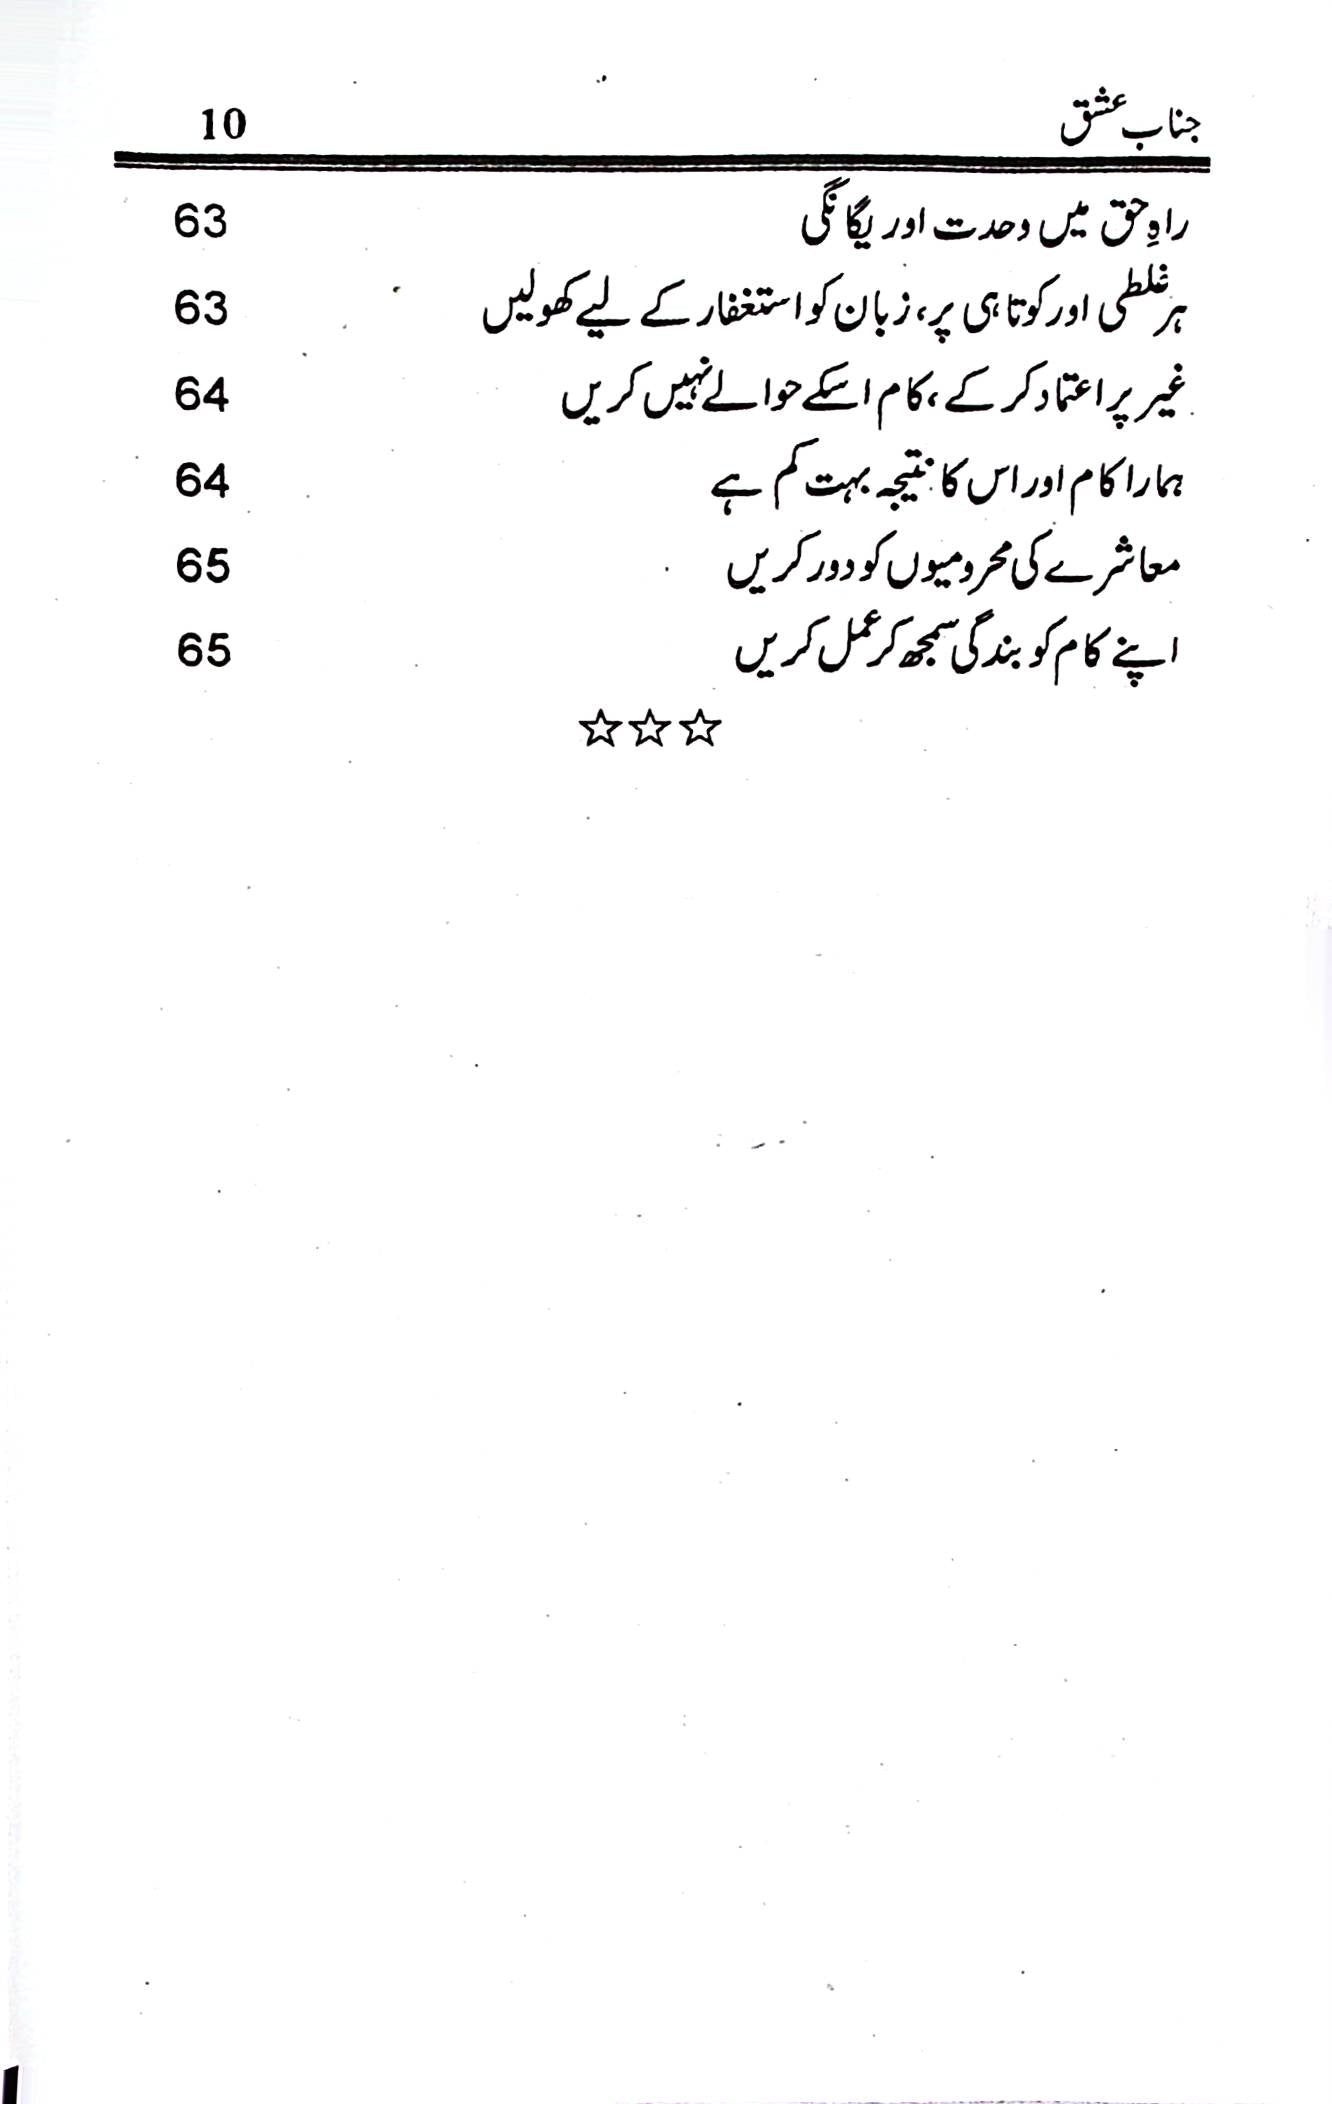 جناب عشق 10
راہِ حق میں وحدت اور یگانگی 63
ہر غلطی اور کوتاہی پر، زبان کو استغفار کے لیے کھولیں 63
غیر پر اعتماد کر کے، کام اسکے حوالے نہیں کریں 64
ہمارا کام اور اس کا نتیجہ بہت کم ہے 64
معاشرے کی محرومیوں کو دور کریں 65
اپنے کام کو بندگی سمجھ کر عمل کریں 65
☆☆☆